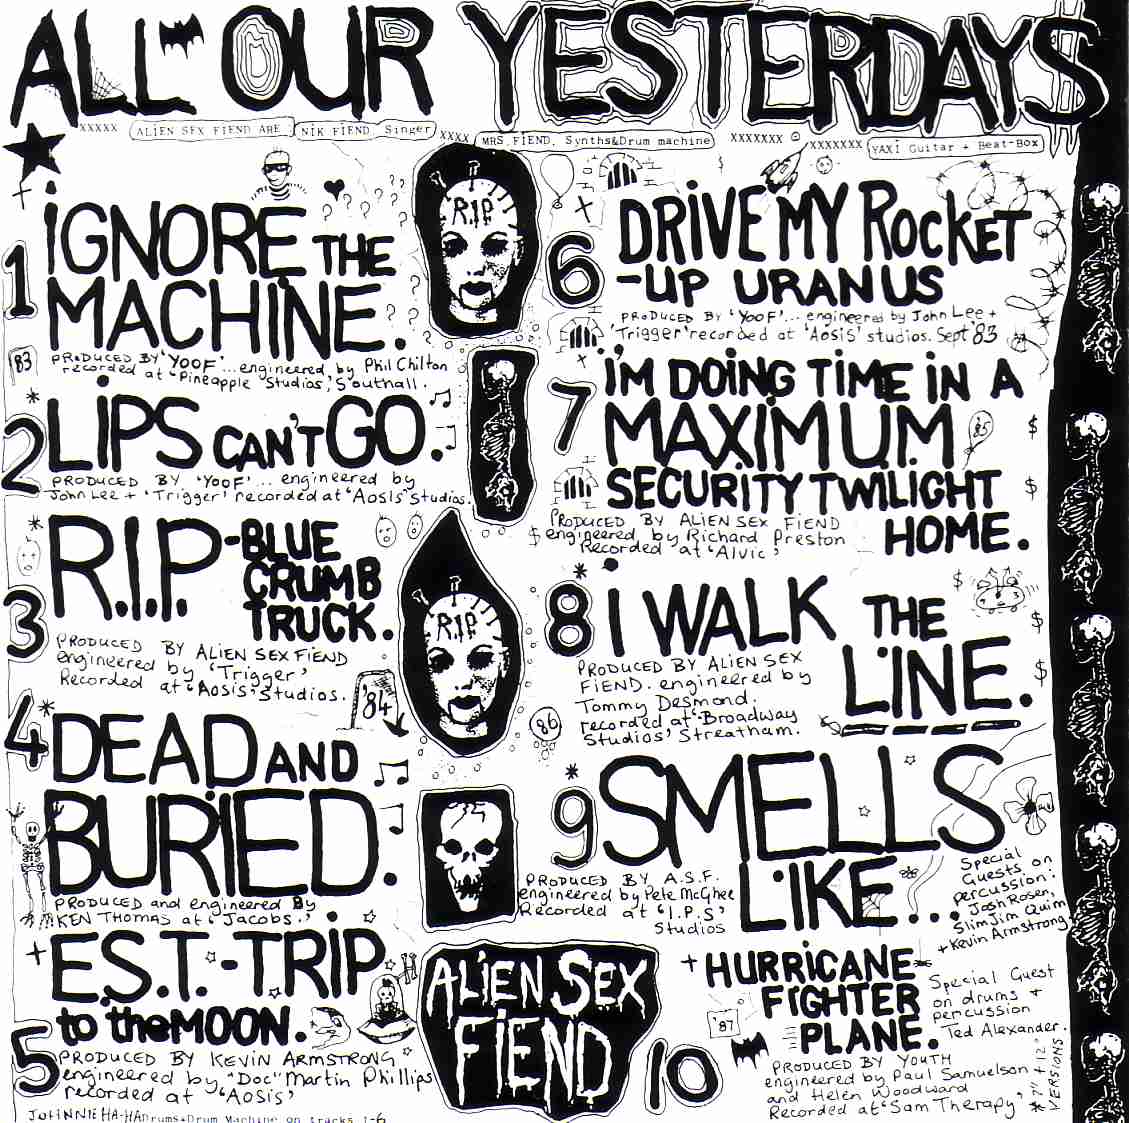 ALL OUR YESTERDAYS
XXXXX ALIEN SEX FIEND ARE: NIK FIEND Singer XXXX MRS.FIEND, Synths&Drum machine XXXXXXX XXXXXXX YAXI Guitar + Beat-Box
1 iGNORE THE
MACHINE.
'83
PRODUCED BY 'YOOF'... engineered by Phil Chilton
recorded at 'Pineapple Studios', Southall.
2 LIPS CAN'T GO.
PRODUCED BY 'YOOF'... engineered by
John Lee + 'Trigger' recorded at 'Aosis' Studios.
3 R.I.P - BLUE
CRUMB
TRUCK.
PRODUCED BY ALIEN SEX FIEND
engineered by 'Trigger'
Recorded at 'Aosis' Studios.
'84
4 DEAD AND
BURIED.
PRODUCED and engineered By
KEN THOMAS at 'Jacobs.'
5 + E.S.T. - TRIP
to the MOON.
PRODUCED BY KEVIN ARMSTRONG
engineered by "Doc" Martin Phillips
recorded at 'AOSIS'
JOHNNIE HA-HA Drums+Drum Machine on tracks 1-6
R.I.P
R.I.P
ALIEN SEX
FIEND
6 DRIVE MY ROCKET
-UP URANUS
PRODUCED BY 'YOOF'... engineered by John Lee +
'Trigger' recorded at 'Aosis' studios. Sept '83
7 i'M DOING TIME IN A
MAXIMUM '85
SECURITY TWILIGHT
HOME.
PRODUCED BY ALIEN SEX FIEND
engineered by Richard Preston
Recorded at 'Alvic'
8 I WALK THE
LINE.
PRODUCED BY ALIEN SEX
FIEND. engineered by
Tommy Desmond.
recorded at 'Broadway
Studios' Streatham.
'86
9 SMELLS
LIKE...
PRODUCED BY A.S.F.
engineered by Pete McGhee
Recorded at 'I.P.S'
Studios
Special
Guests on
percussion:
Josh Rosen,
Slim Jim Quim
+ Kevin Armstrong
10 + HURRICANE
FIGHTER
PLANE.
'87
Special Guest
on drums +
percussion
Ted Alexander.
PRODUCED BY YOUTH
engineered by Paul Samuelson
and Helen Woodward
Recorded at 'Sam Therapy'
* 7" + 12"
VERSIONS